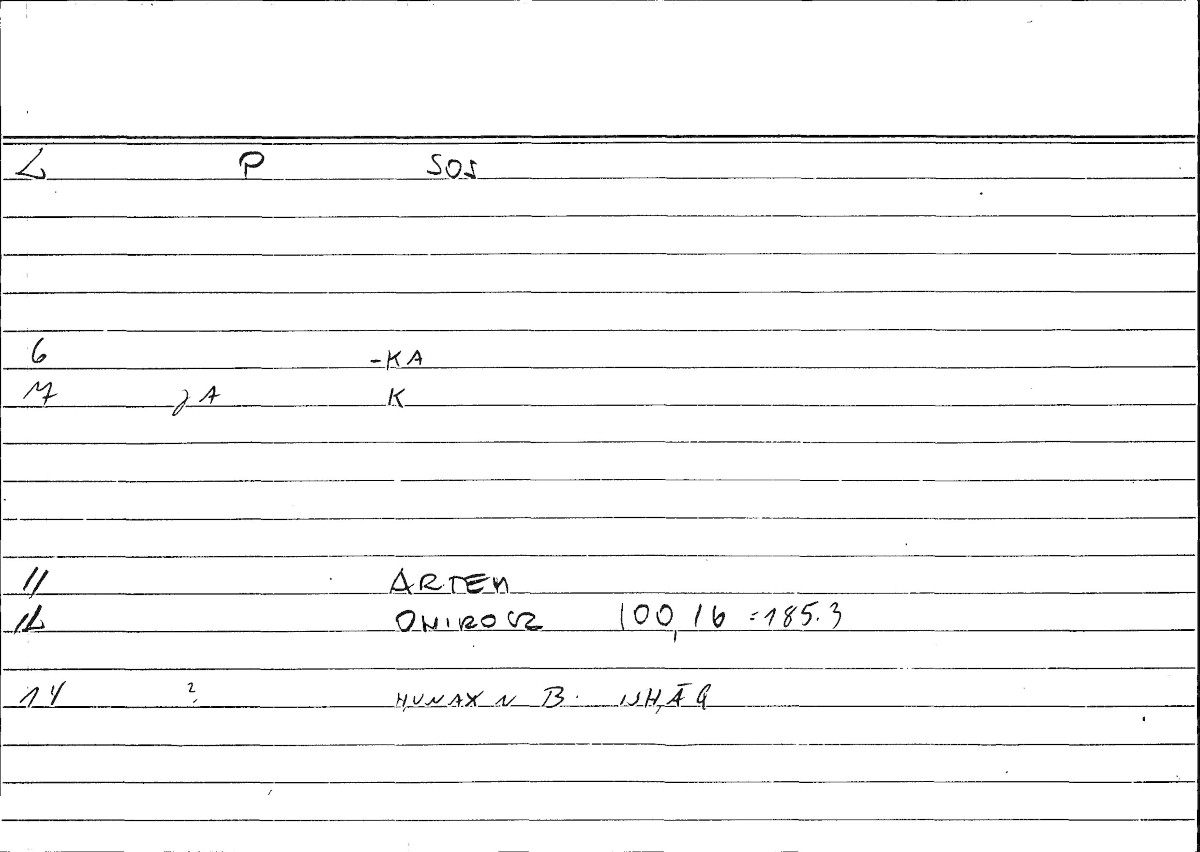 L P SOS
6 -KA
M JA K
11 ARTEM
12 ONIROCR 100,16 =185.3
14 ? ḤUNAX N B. ISḤĀQ